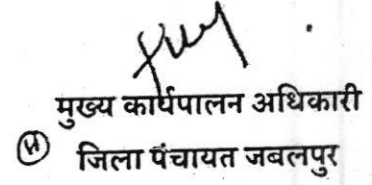 मुख्य कार्यपालन अधिकारी
जिला पंचायत जबलपुर